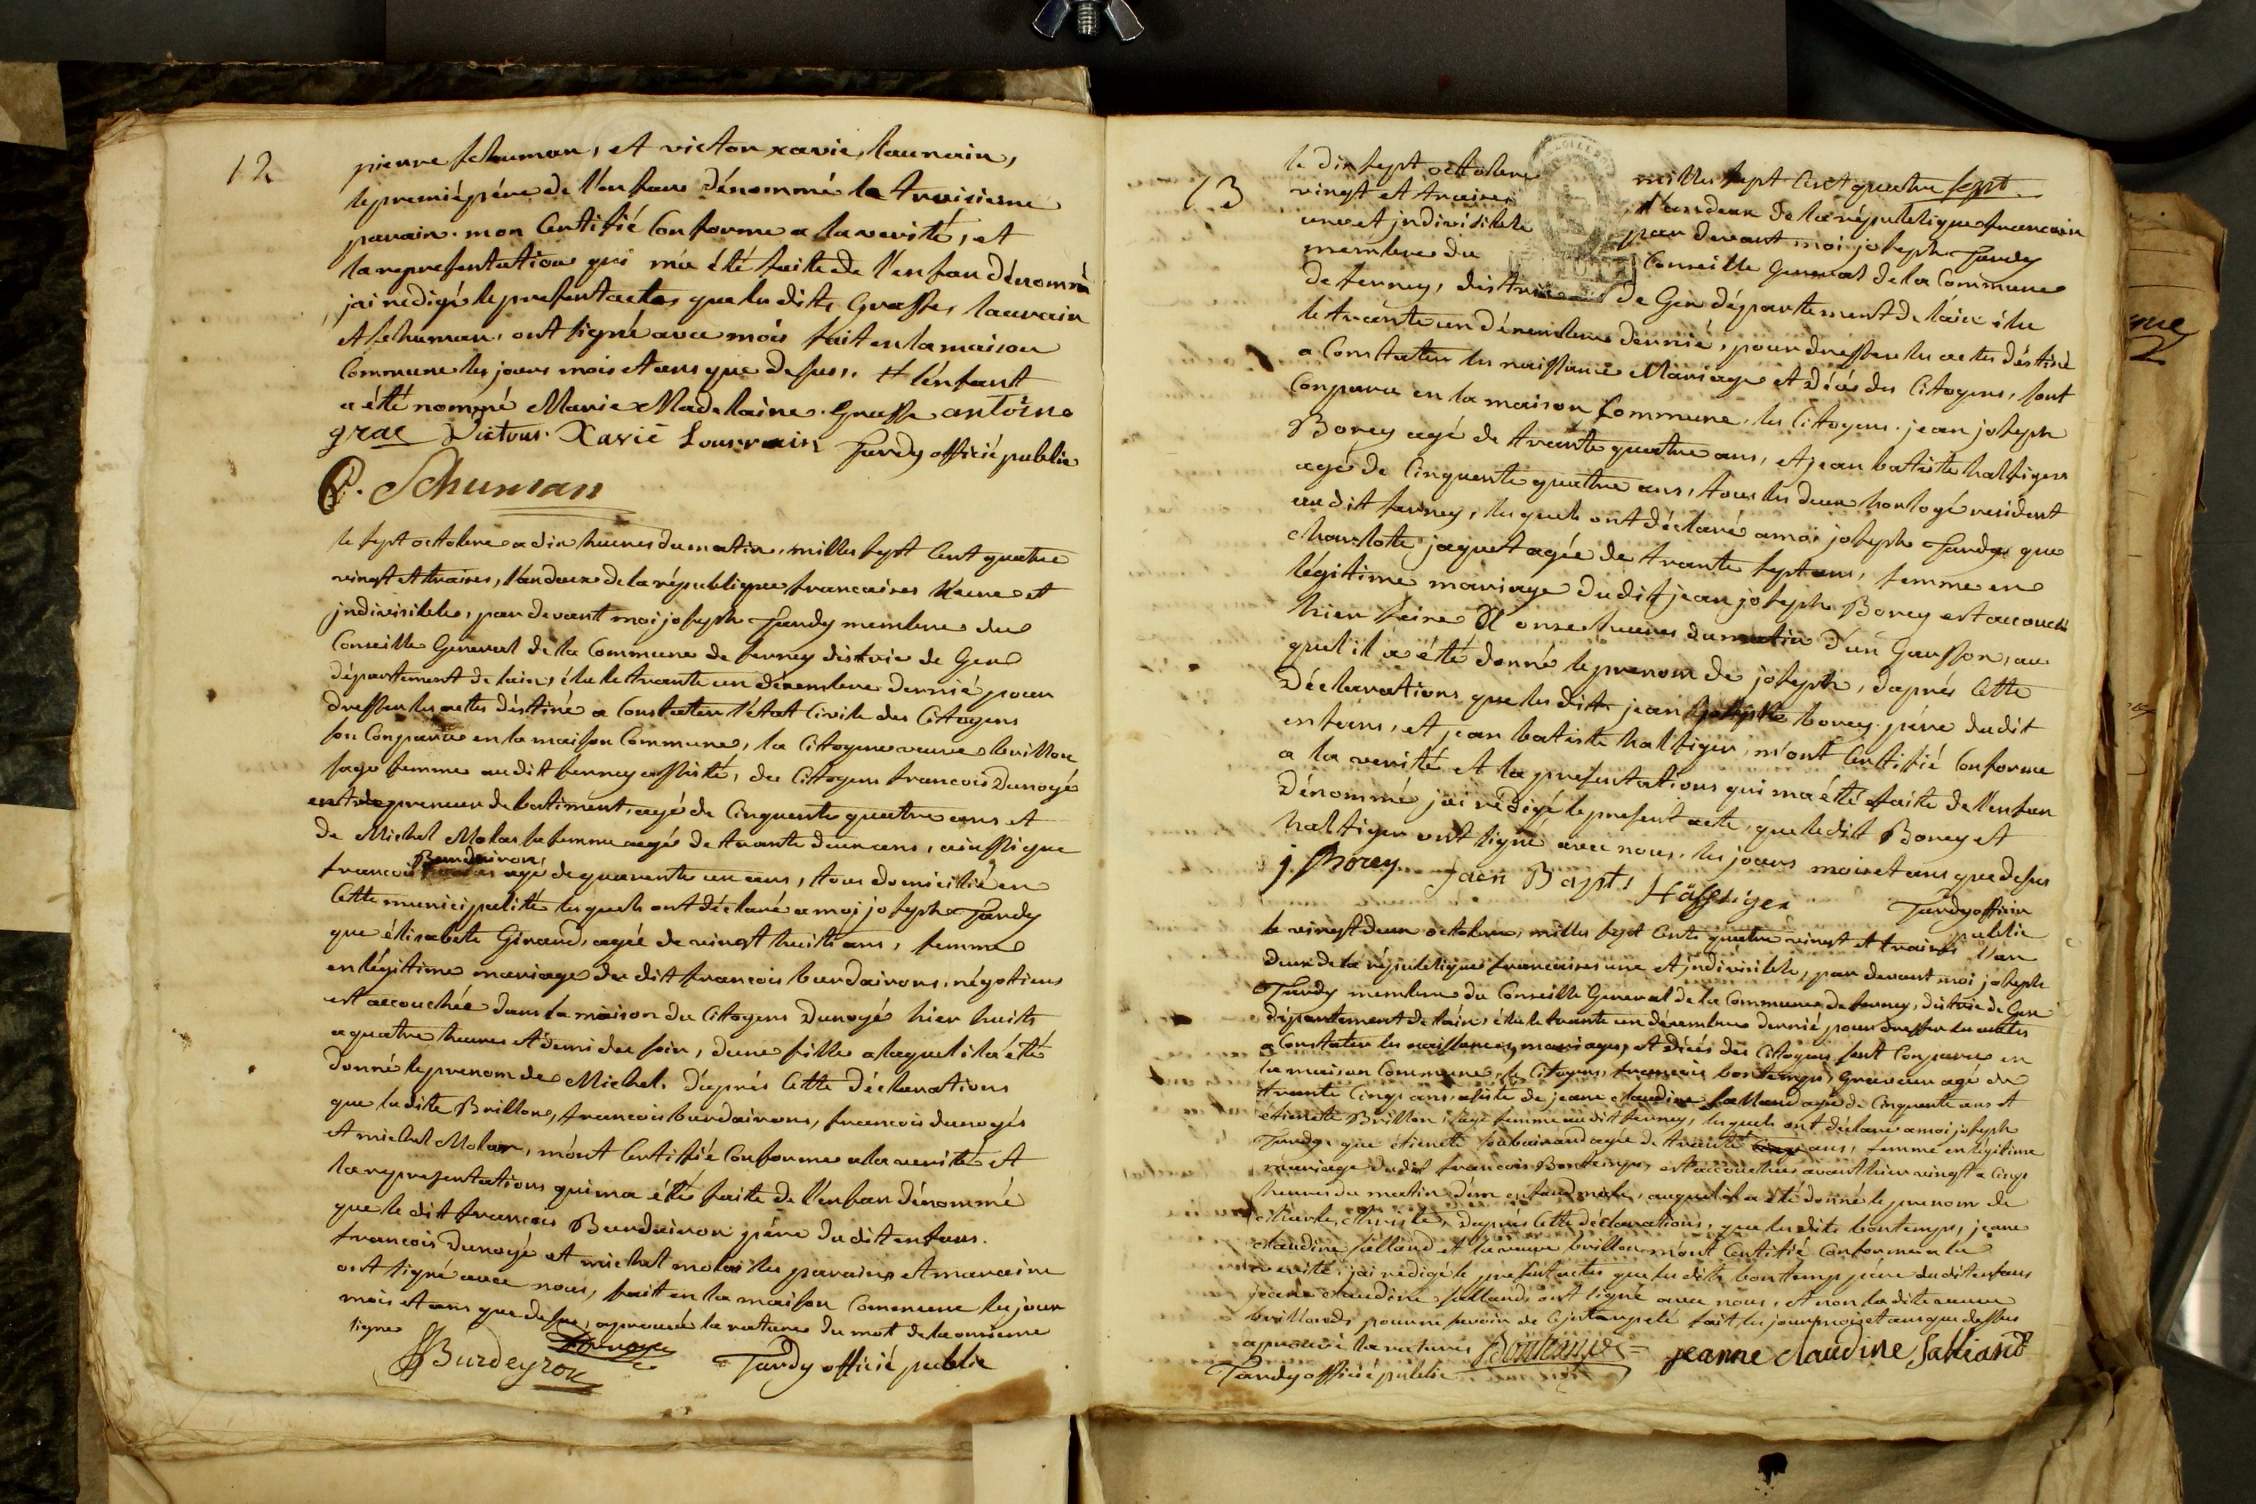 12
pierre schuman, et victor xavié lauurain,
le premié pére de l'enfans dénommé le troisieme
parain. mon Certifié Conforme a la verité, et
la representation qui m'a été faite de l'enfan dénommé
jai rédigé le present acte, que les dits Grasse, lauvain
et schuman, ont signé avec mois fait en la maison
Commune les jours mois et ans que desus. et l'enfant
a été nommé Marie Madelaine. Grasse antoine
grac Victour Xavié Lourrain Tardy officié public
P. Schuman
le sept octobre a dix heures du matin, milles sept Cent quatre
vingt et traizes, l'an deux de la république francaises une et
jndivisible, par devant moi joseph Tardy membre du
Conseille General de la Commune de ferney district de Gex
département de lain, élu le trante un décembre dernié pour
dresser les actes déstiné a Constater l'état Civile des Citoyens
son Comparu en la maison Commune, la Citoyene veuve brillon
sage femme au dit ferney assisté, du Citoyen francois Dunoyé
entrepreneur de batiment, agé de Cinquante quatre ans et
de Michel Molar sa femme agé de trante deux ans, ainssi que
francois Burdairon agé de quarente un ans, tous domicilié en
Cette municipalité les quels ont déclaré a moi joseph Tardy
que élisabete Giraud, agée de vingt huits ans, femme
en légitime mariage du dit francois burdairons, négotiens
est accouchée dans la maison du Citoyens Dunoyé hier huits
a quatre heures et demi du soir, dune fille a laquel il a été
donné le prenom de Michel. d'aprés Cette déclarations
que la dite Brillon, francois burdairons, francois dunoyés
et michel Molar, m'ont Certifié Conforme a la verité et
la representations qui ma été faite de l'enfan dénommé
que le dit francois Burdairon pére du dit enfans.
francois Dunoyé et michel molar les parains et maraine
ont signé avec nous, fait en la maison Commune les jour
mois et ans que desus, aprouvé la rature du mot de la onsieme
ligne Dunoyé
Burdeyron Tardy officié public
13
le dix sept octobre milles sept Cent quatre sept
vingt et traizes, l'an deux de la république francaise
une et jndivisible par devant moi joseph Tardy
membre du Conseille General de la Commune
de ferney, district de Gex département de lain élu
le trante un décembre dernié, pour dresser les actes déstiné
a Constater les naissance Mariage et décés des Citoyens, sont
Comparu en la maison Commune, les Citoyens. jean joseph
Borey agé de trante quatre ans, et jean batiste halfliger
agé de Cinquente quatre ans, tous les deux horlogé resident
au dit ferney, les quels ont déclaré a moi joseph Tardy que
charlote jaquet agée de trante sept ans, femme en
légitime mariage du dit jean joseph Borey est accouché
hier seize a onse heures du matin d'un Garsson, au
quel il a été donné le prenom de joseph, daprés Cette
déclarations que les dit jean joseph borey pére du dit
enfans, et jean batiste halfliger, m'ont Certifié Conforme
a la verité et la presentations qui ma été faite de l'enfan
dénommé jai rédigé le present acte, que le dit Borey et
halfliger ont signé avec nous, les jours mois et ans que desus
j. Borey Jaen Bapt. Häffliger Tardy officier
public
le vingt deux octobre, milles sept Cents quatre vingt et traizes l'an
deux de la république francaises une et jndivisible, par devant moi joseph
Tardy membre du Conseille General de la Commune de ferney, district de Gex
département de lain, élu le trante un décembre dernié pour dresser les actes
a Constater les naissances, mariages, et décés des Citoyens sont Comparu en
la maison Commune, le Citoyens, francois bontemps, Graveur agé de
trante Cinqs ans, asisté de jeane claudine salland agée de Cinquante ans et
étienete Brillon sage femme au dit ferney, les quels ont déclaré a moi joseph
Tardy, que étienete soubairand agée de trante ans, femme en légitime
mariage du dit francois Bontemps, est accouchée avant hier vingt a Cinqs
heures du matin d'un enfand male, auquel il a été donné le prenom de
charle, daprés Cette déclarations, que les dits bontemps, jeane
claudine salland et la veuve brillon m'ont Certifié Conforme a la
verité, jai rédigé le present actes que les dits bontemp pére du dit enfans
jeane claudine salland, ont signé avec nous, et non la dite veuve
brillonds pour ne savoir de Ce jnterpelé fait les jour mois et ans que dessus
aprouvé la ratures Bontemps jeanne claudine Salliand
Tardy officié public